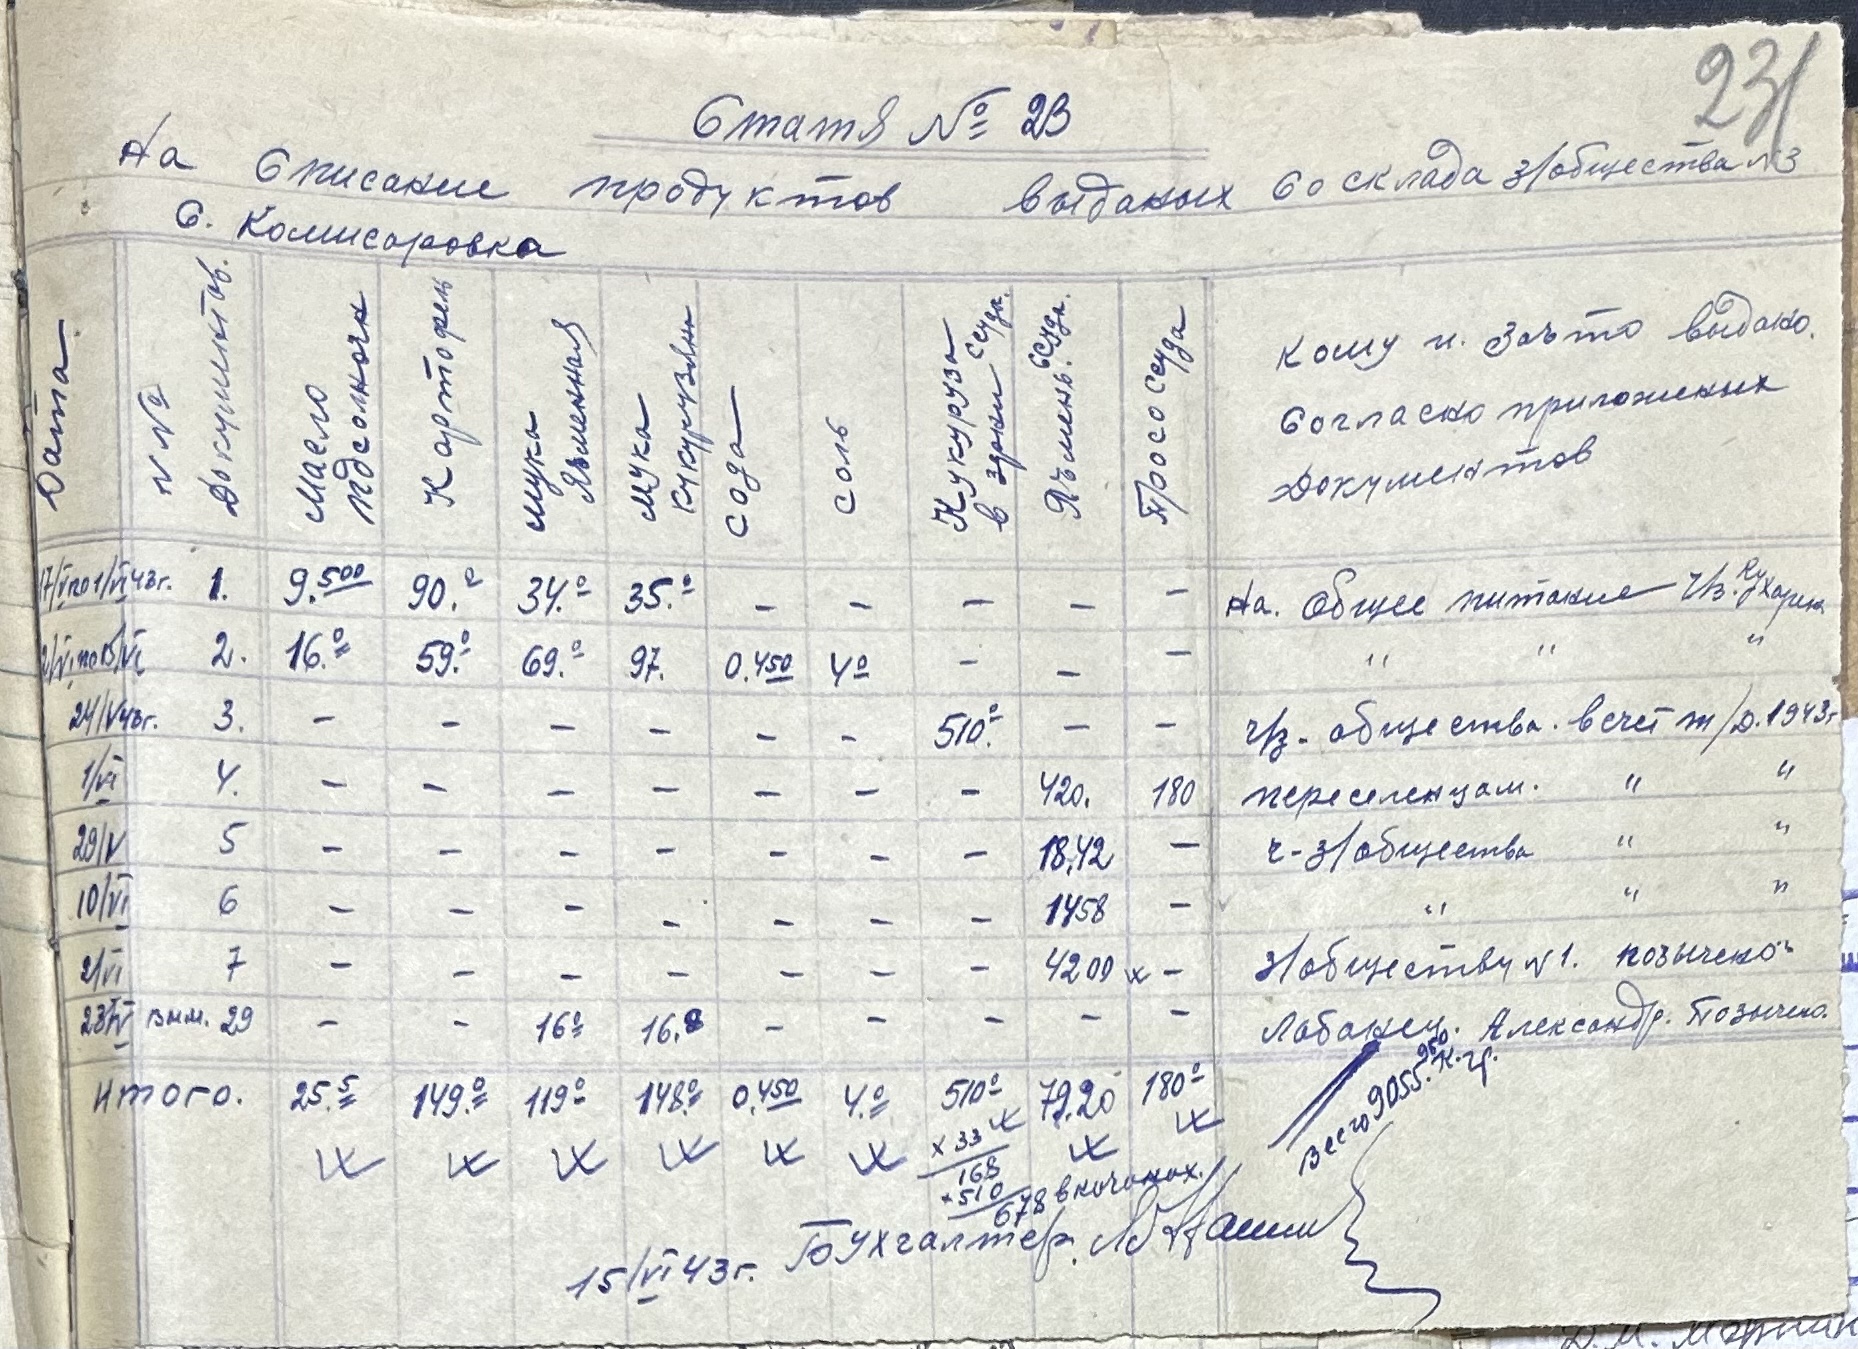 231
Стаття № 23
На Списание продуктов выданых Со склада з/общества №3
С. Комисаровка
Дата №№ Документов. Масло пдсолнечн Картофель Мука Яъменная Мука Кукурузвяна Сода Соль Кукуруза в зерни ссуда. Яъмень. ссуда. Просо ссуда Кому и. Заъто выдано.
Согласно приложеных
Документов
17/V по 1/VI 43г. 1. 9.500 90.0 34.0 35.0 – – – – – На. Общее питание ч/з. Кухарки
2/VI по 15/VI 2. 16.0 59.0 69.0 97. 0.450 4.0 – – – " " "
24/V 43г. 3. – – – – – – 510.0 – – ч/з. общества. в счет т/д. 1943г
1/VI 4. – – – – – – – 420. 180 переселенцам. " "
29/V 5 – – – – – – – 18.42 – ч-з/общества " "
10/VI 6 – – – – – – – 1458 – " " "
2/VI 7 – – – – – – – 4200 х – з/обществу №1. позычено
23/IV вим. 29 – – 16.0 16.8 – – – – – Лобанец. Александр. Позычено.
Итого. 25.5 149.0 119.0 148.0 0.450 4.0 510.0 79.20 180.0
Всего 9055.950 к.гр.
х 33
168
+510
678 в кочанах.
15/VI 43г. Бухгалтер.